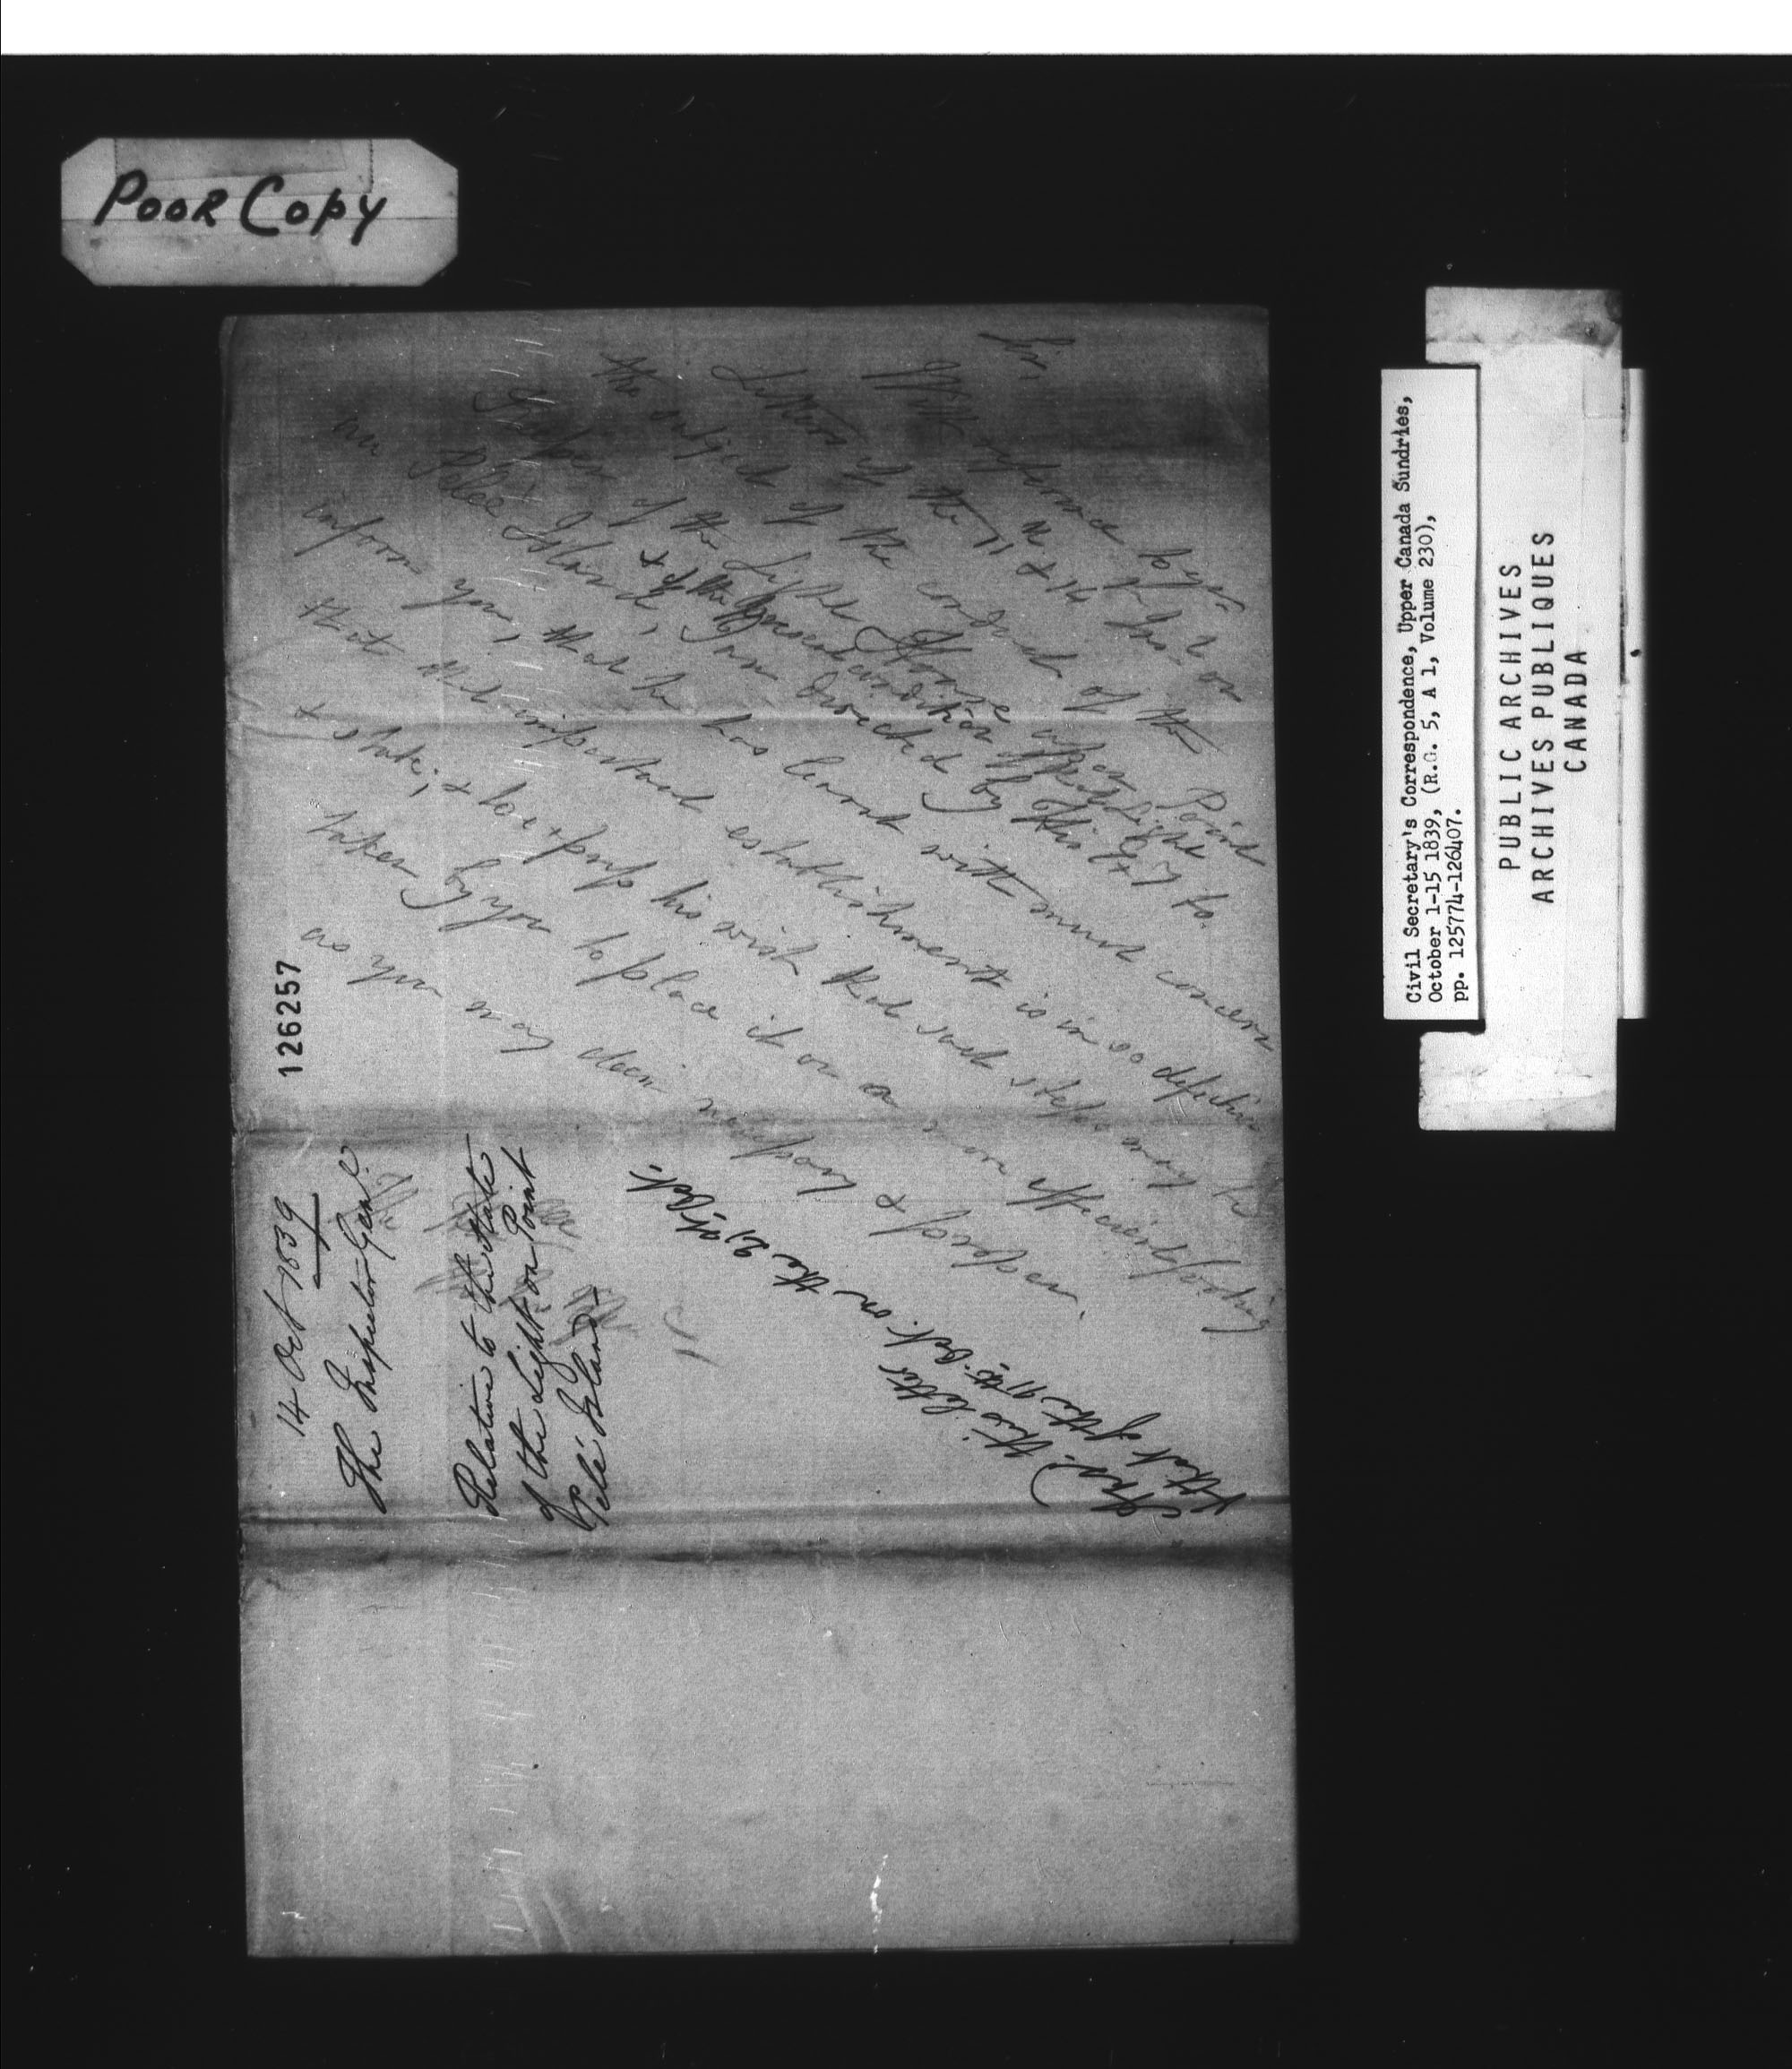 POOR COPY
Sir,
With reference to your
Letters of the 11 & 14 Inst. on
the subject of the conduct of the
Keeper of the Light House upon Point
& of the present condition of that Light
au Pelee Island, I am directed by His Ex to
inform you, that he has learnt with much concern
that that important establishment is in so defective
a state; & to express his wish that such steps may be
taken by you to place it on a more efficient footing
as you may deem necessary & proper.
126257
14 Oct 1839
The Inspector Genl.
Relative to the state
of the Light on Point
Pelé Island
Ansd. this letter
& that of the 11th Oct. on the 21st Oct.
Civil Secretary's Correspondence, Upper Canada Sundries,
October 1-15 1839, (R.G. 5, A 1, Volume 230),
pp. 125774-126407.
PUBLIC ARCHIVES
ARCHIVES PUBLIQUES
CANADA